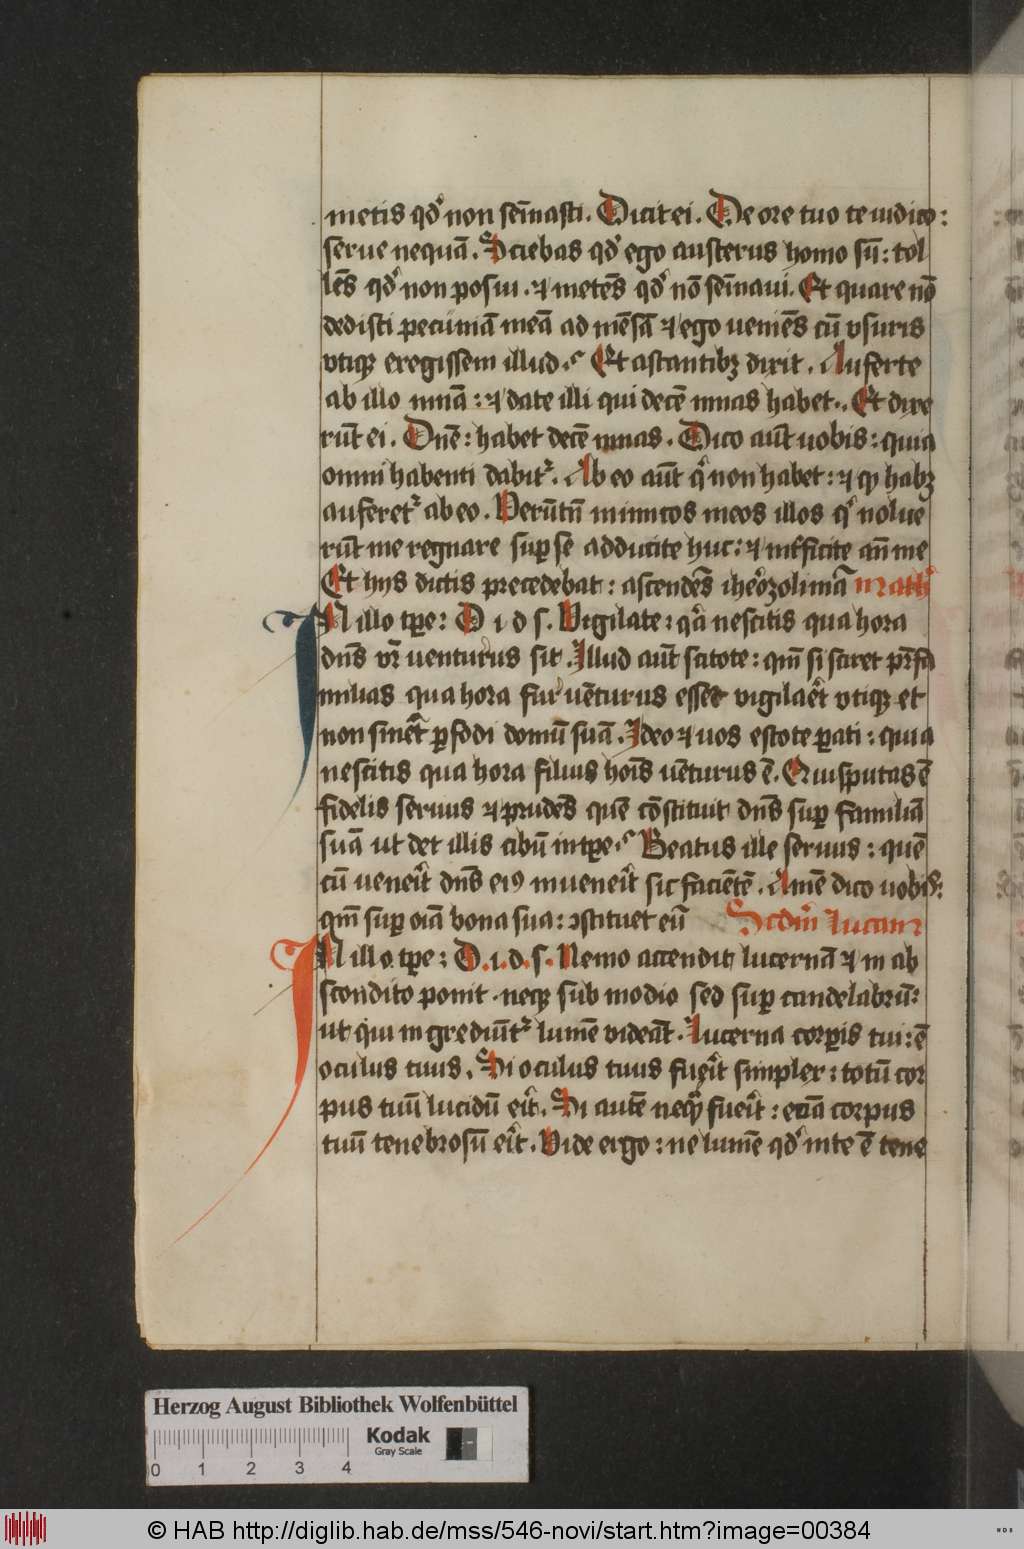 metis qd' non sēīnasti. Dicit ei. De ore tuo te iudico:
serue nequā. Sciebas qd' ego austerus homo sū: tol
lēs qd' non posui. ⁊ metēs qd' nō sēīnaui. Et quare nō
dedisti pecuniā meā ad mēsā ⁊ ego ueniēs cū vsuris
vtiqꝫ exegissem illud. Et astantibꝫ dixit. Auferte
ab illo mnā: ⁊ date illi qui decē mnas habet. Et dixe
rūt ei. Dn̄e: habet decē mnas. Dico aūt uobis: quia
omni habenti dabit᷑. Ab eo aūt qͥ non habet: ⁊ qͩ habꝫ
auferet᷑ ab eo. Verūtn̄ inimicos meos illos qͥ nolue
rūt me regnare suꝑ se adducite huc: ⁊ int̄ficite an̄ me
Et hys dictis precedebat: ascendēs iheͦozolimā Math'
IN illo tp̄e: D i d s. Vigilate: qͣ nescitis qua hora
dn̄s vr̄ uenturus sit. Illud aūt scitote: qm̄ si sciret pr̄fa
milias qua hora fur uēturus esset vigilar̄et vtiqꝫ et
non siner̄et ꝑfodi domū suā. Ideo ⁊ uos estote ꝑati: quia
nescitis qua hora filius hoīs uēturus ē. Quis putas ē
fidelis seruus ⁊ prudēs quē cōstituit dn̄s suꝑ familiā
suā ut det illis cibū in tp̄e. Beatus ille seruus: quē
cū uenerīt dn̄s eiꝰ inuenerīt sic faciētē. Amē dico uobis:
qm̄ suꝑ oīa bona sua: ꝯstituet eū Scdm̄ Lucam
IN illo tp̄e: D. i. d. s. Nemo accendit lucernā ⁊ in ab
scondito ponit. neqꝫ sub modio sed suꝑ candelabrū:
ut qui ingrediūt᷑ lumē videāt. Lucerna corꝑis tui: ē
oculus tuus. Si oculus tuus fuerīt simplex: totū cor
pus tuū lucidū erīt. Si autē neqͣ fuerīt: eciā corpus
tuū tenebrosū erīt. Vide ergo: ne lumē qd' in te ē tene
Herzog August Bibliothek Wolfenbüttel
Kodak
Gray Scale
0 1 2 3 4
© HAB http://diglib.hab.de/mss/546-novi/start.htm?image=00384